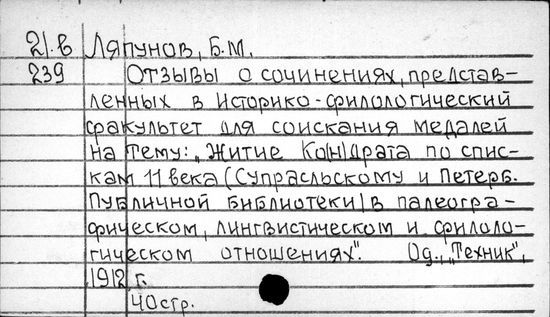 21.В Ляпунов, Б.М.
239 Отзывы о сочинениях, представ-
ленных в Историко-филологический
факультет для соискания медалей
на тему: „Житие Ко(н)драта по спис-
кам 11 века (Супрасльскому и Петерб.
Публичной библиотеки) в палеогра-
фическом, лингвистическом и филоло-
гическом отношениях". Од., „Техник",
1912 г.
40 стр.